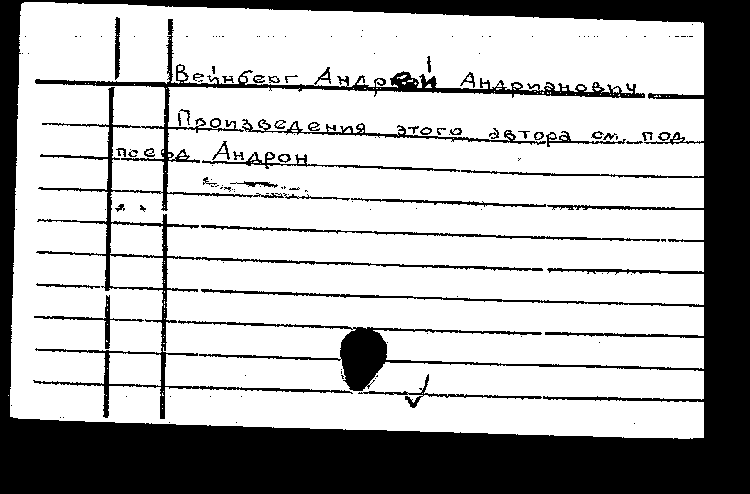 Вейнберг, Андрей Андрианович
Произведения этого автора см. под
псевд Андрон